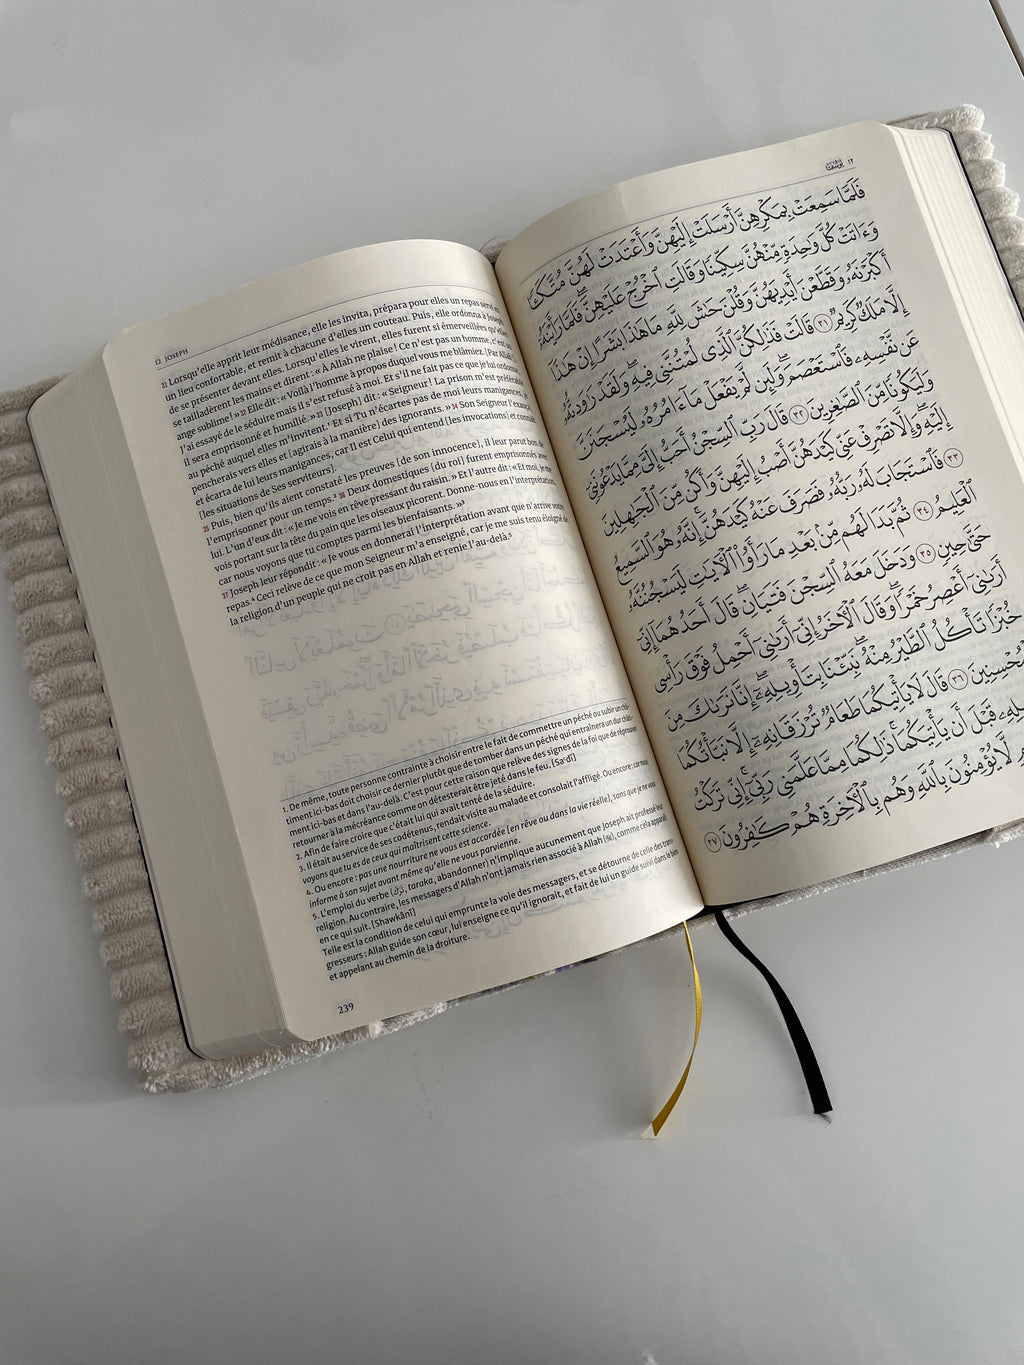 12 JOSEPH
31 Lorsqu'elle apprit leur médisance, elle les invita, prépara pour elles un repas servi
un lieu confortable, et remit à chacune d'elles un couteau. Puis, elle ordonna à Joseph
de se présenter devant elles. Lorsqu'elles le virent, elles furent si émerveillées qu'elles
se tailladèrent les mains et dirent : « À Allah ne plaise ! Ce n'est pas un homme, c'est
ange sublime ! » 32 Elle dit : « Voilà l'homme à propos duquel vous me blâmiez. [Par Allah]
J'ai essayé de le séduire mais il s'est refusé à moi. Et s'il ne fait pas ce que je lui ordonne
il sera emprisonné et humilié. » 33 [Joseph] dit : « Seigneur ! La prison m'est préférable
au péché auquel elles m'invitent.¹ Et si Tu n'écartes pas de moi leurs manigances, je
pencherais vers elles et [agirais à la manière] des ignorants. » 34 Son Seigneur l'exauça
et écarta de lui leurs manigances, car Il est Celui qui entend [les invocations] et connaît
[les situations de Ses serviteurs].
35 Puis, bien qu'ils aient constaté les preuves [de son innocence], il leur parut bon de
l'emprisonner pour un temps.² 36 Deux domestiques [du roi] furent emprisonnés avec
lui. L'un d'eux dit : « Je me vois en rêve pressant du raisin. » Et l'autre dit : « Et moi, je me
vois portant sur la tête du pain que les oiseaux picorent. Donne-nous en l'interprétation,
car nous voyons que tu comptes parmi les bienfaisants. »³
37 Joseph leur répondit : « Je vous en donnerai l'interprétation avant que n'arrive votre
repas.⁴ Ceci relève de ce que mon Seigneur m'a enseigné, car je me suis tenu éloigné de
la religion d'un peuple qui ne croit pas en Allah et renie l'au-delà.⁵
1. De même, toute personne contrainte à choisir entre le fait de commettre un péché ou subir un châ-
timent ici-bas doit choisir ce dernier plutôt que de tomber dans un péché qui entraînera un dur châti-
ment ici-bas et dans l'au-delà. C'est pour cette raison que relève des signes de la foi que de réprouver
retourner à la mécréance comme on détesterait être jeté dans le feu. [Sa'dî]
2. Afin de faire croire que c'était lui qui avait tenté de la séduire.
3. Il était au service de ses codétenus, rendait visite au malade et consolait l'affligé. Ou encore : car nous
voyons que tu es de ceux qui maîtrisent cette science.
4. Ou encore : pas une nourriture ne vous est accordée [en rêve ou dans la vie réelle], sans que je ne vous
informe à son sujet avant même qu'elle ne vous parvienne.
5. L'emploi du verbe (تَرَكَ, taraka, abandonner) n'implique aucunement que Joseph ait professé leur
religion. Au contraire, les messagers d'Allah n'ont jamais rien associé à Allah (ﷻ), comme cela apparaît
en ce qui suit. [Shawkânî]
Telle est la condition de celui qui emprunte la voie des messagers, et se détourne de celle des trans-
gresseurs : Allah guide son cœur, lui enseigne ce qu'il ignorait, et fait de lui un guide suivi dans le bien
et appelant au chemin de la droiture.
239
١٢ يُوسُف
فَلَمَّا سَمِعَتْ بِمَكْرِهِنَّ أَرْسَلَتْ إِلَيْهِنَّ وَأَعْتَدَتْ لَهُنَّ مُتَّكَـًٔا
وَءَاتَتْ كُلَّ وَٰحِدَةٍ مِّنْهُنَّ سِكِّينًا وَقَالَتِ ٱخْرُجْ عَلَيْهِنَّ ۖ فَلَمَّا رَأَيْنَهُۥٓ
أَكْبَرْنَهُۥ وَقَطَّعْنَ أَيْدِيَهُنَّ وَقُلْنَ حَٰشَ لِلَّهِ مَا هَٰذَا بَشَرًا إِنْ هَٰذَآ
إِلَّا مَلَكٌ كَرِيمٌ ٣١ قَالَتْ فَذَٰلِكُنَّ ٱلَّذِى لُمْتُنَّنِى فِيهِ ۖ وَلَقَدْ رَٰوَدتُّهُۥ
عَن نَّفْسِهِۦ فَٱسْتَعْصَمَ ۖ وَلَئِن لَّمْ يَفْعَلْ مَآ ءَامُرُهُۥ لَيُسْجَنَنَّ
وَلَيَكُونًا مِّنَ ٱلصَّٰغِرِينَ ٣٢ قَالَ رَبِّ ٱلسِّجْنُ أَحَبُّ إِلَىَّ مِمَّا يَدْعُونَنِىٓ
إِلَيْهِ ۖ وَإِلَّا تَصْرِفْ عَنِّى كَيْدَهُنَّ أَصْبُ إِلَيْهِنَّ وَأَكُن مِّنَ ٱلْجَٰهِلِينَ
٣٣ فَٱسْتَجَابَ لَهُۥ رَبُّهُۥ فَصَرَفَ عَنْهُ كَيْدَهُنَّ ۚ إِنَّهُۥ هُوَ ٱلسَّمِيعُ
ٱلْعَلِيمُ ٣٤ ثُمَّ بَدَا لَهُم مِّنۢ بَعْدِ مَا رَأَوُا۟ ٱلْءَايَٰتِ لَيَسْجُنُنَّهُۥ
حَتَّىٰ حِينٍ ٣٥ وَدَخَلَ مَعَهُ ٱلسِّجْنَ فَتَيَانِ ۖ قَالَ أَحَدُهُمَآ إِنِّىٓ
أَرَىٰنِىٓ أَعْصِرُ خَمْرًا ۖ وَقَالَ ٱلْءَاخَرُ إِنِّىٓ أَرَىٰنِىٓ أَحْمِلُ فَوْقَ رَأْسِى
خُبْزًا تَأْكُلُ ٱلطَّيْرُ مِنْهُ ۖ نَبِّئْنَا بِتَأْوِيلِهِۦٓ ۖ إِنَّا نَرَىٰكَ مِنَ
ٱلْمُحْسِنِينَ ٣٦ قَالَ لَا يَأْتِيكُمَا طَعَامٌ تُرْزَقَانِهِۦٓ إِلَّا نَبَّأْتُكُمَا
بِتَأْوِيلِهِۦ قَبْلَ أَن يَأْتِيَكُمَا ۚ ذَٰلِكُمَا مِمَّا عَلَّمَنِى رَبِّىٓ ۚ إِنِّى تَرَكْتُ
لَّا يُؤْمِنُونَ بِٱللَّهِ وَهُم بِٱلْءَاخِرَةِ هُمْ كَٰفِرُونَ ٣٧